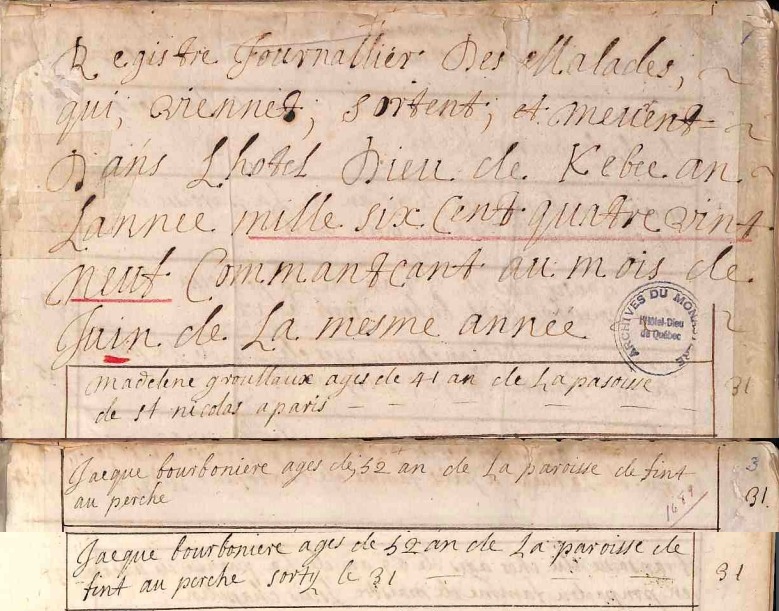 1
Registre Journallier Des Malades,
qui, viennet, sortent, et meuent
Dans Lhotel Dieu de Kebec an
Lannee mille six Cent quatre vint
neuf Commantcant au mois de
Juin de La mesme année
ARCHIVES DU MONASTÈRE
l'Hôtel-Dieu
de Québec
madelene groullaux ages de 41 an de La paroisse 31
de st nicolas a paris
3
Jacque bourboniere ages de 52 an de La paroisse de fint 31
au perche
1689
Jacque bourboniere ages de 52 an de La paroisse de
fint au perche sorty le 31 31